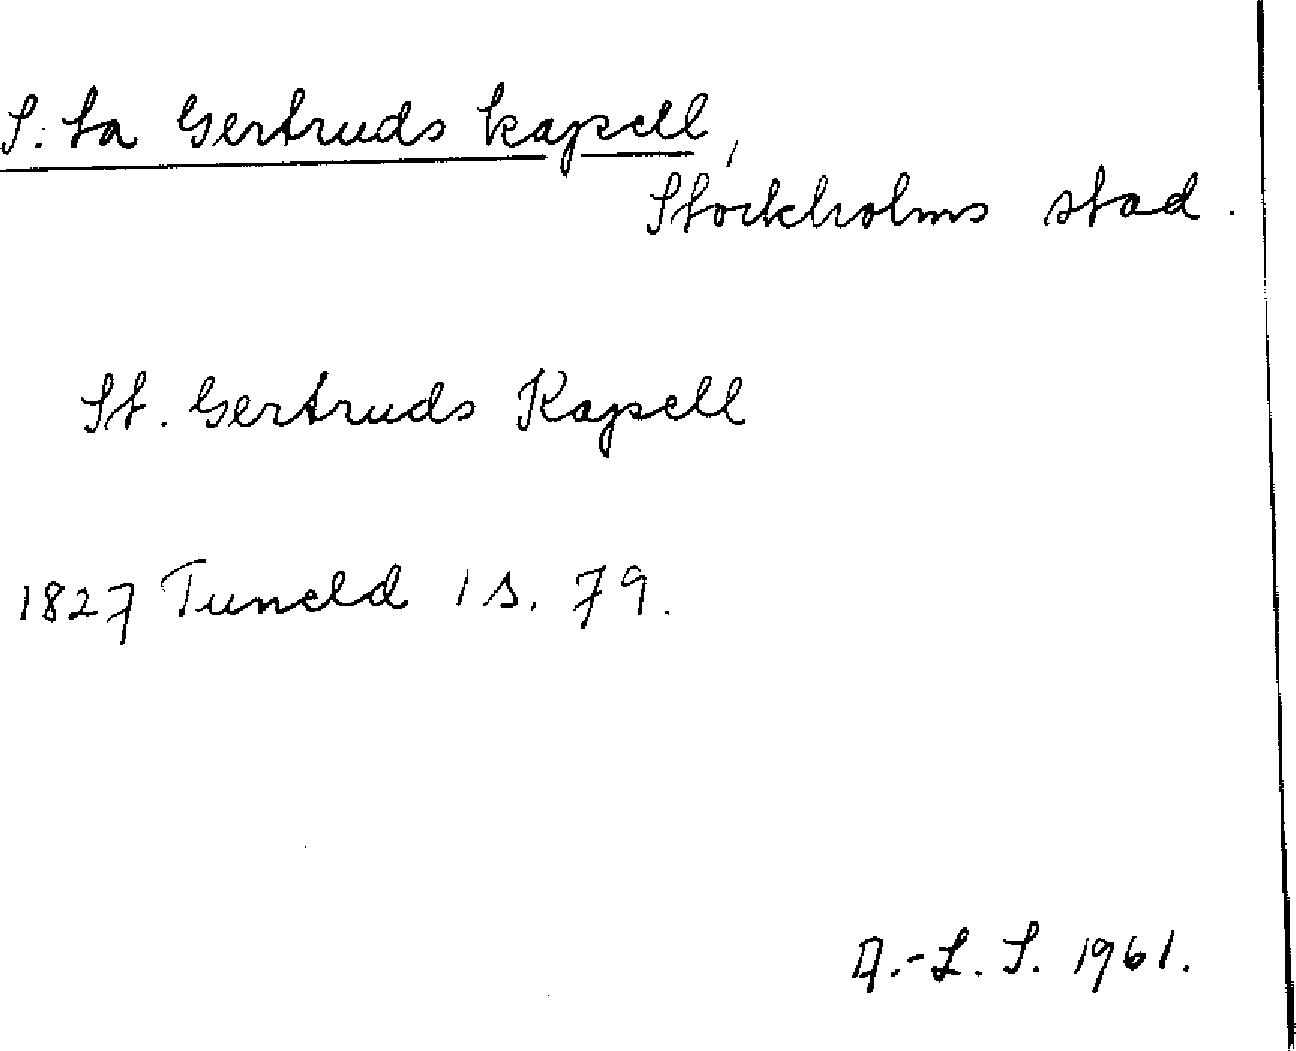 S:ta Gertruds kapell,
Stockholms stad.
St. Gertruds Kapell
1827 Tuneld 1 s. 79.
A.-L. S. 1961.